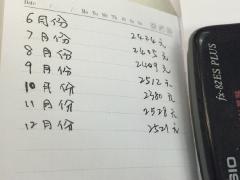 Date
Mo Tu We Th Fr Sa Su
6月份 2424元
7月份 2405元
8月份 2409元
9月份 2512元
10月份 2380元
11月份 2528元
12月份 2521元
fx-82ES PLUS
SIO